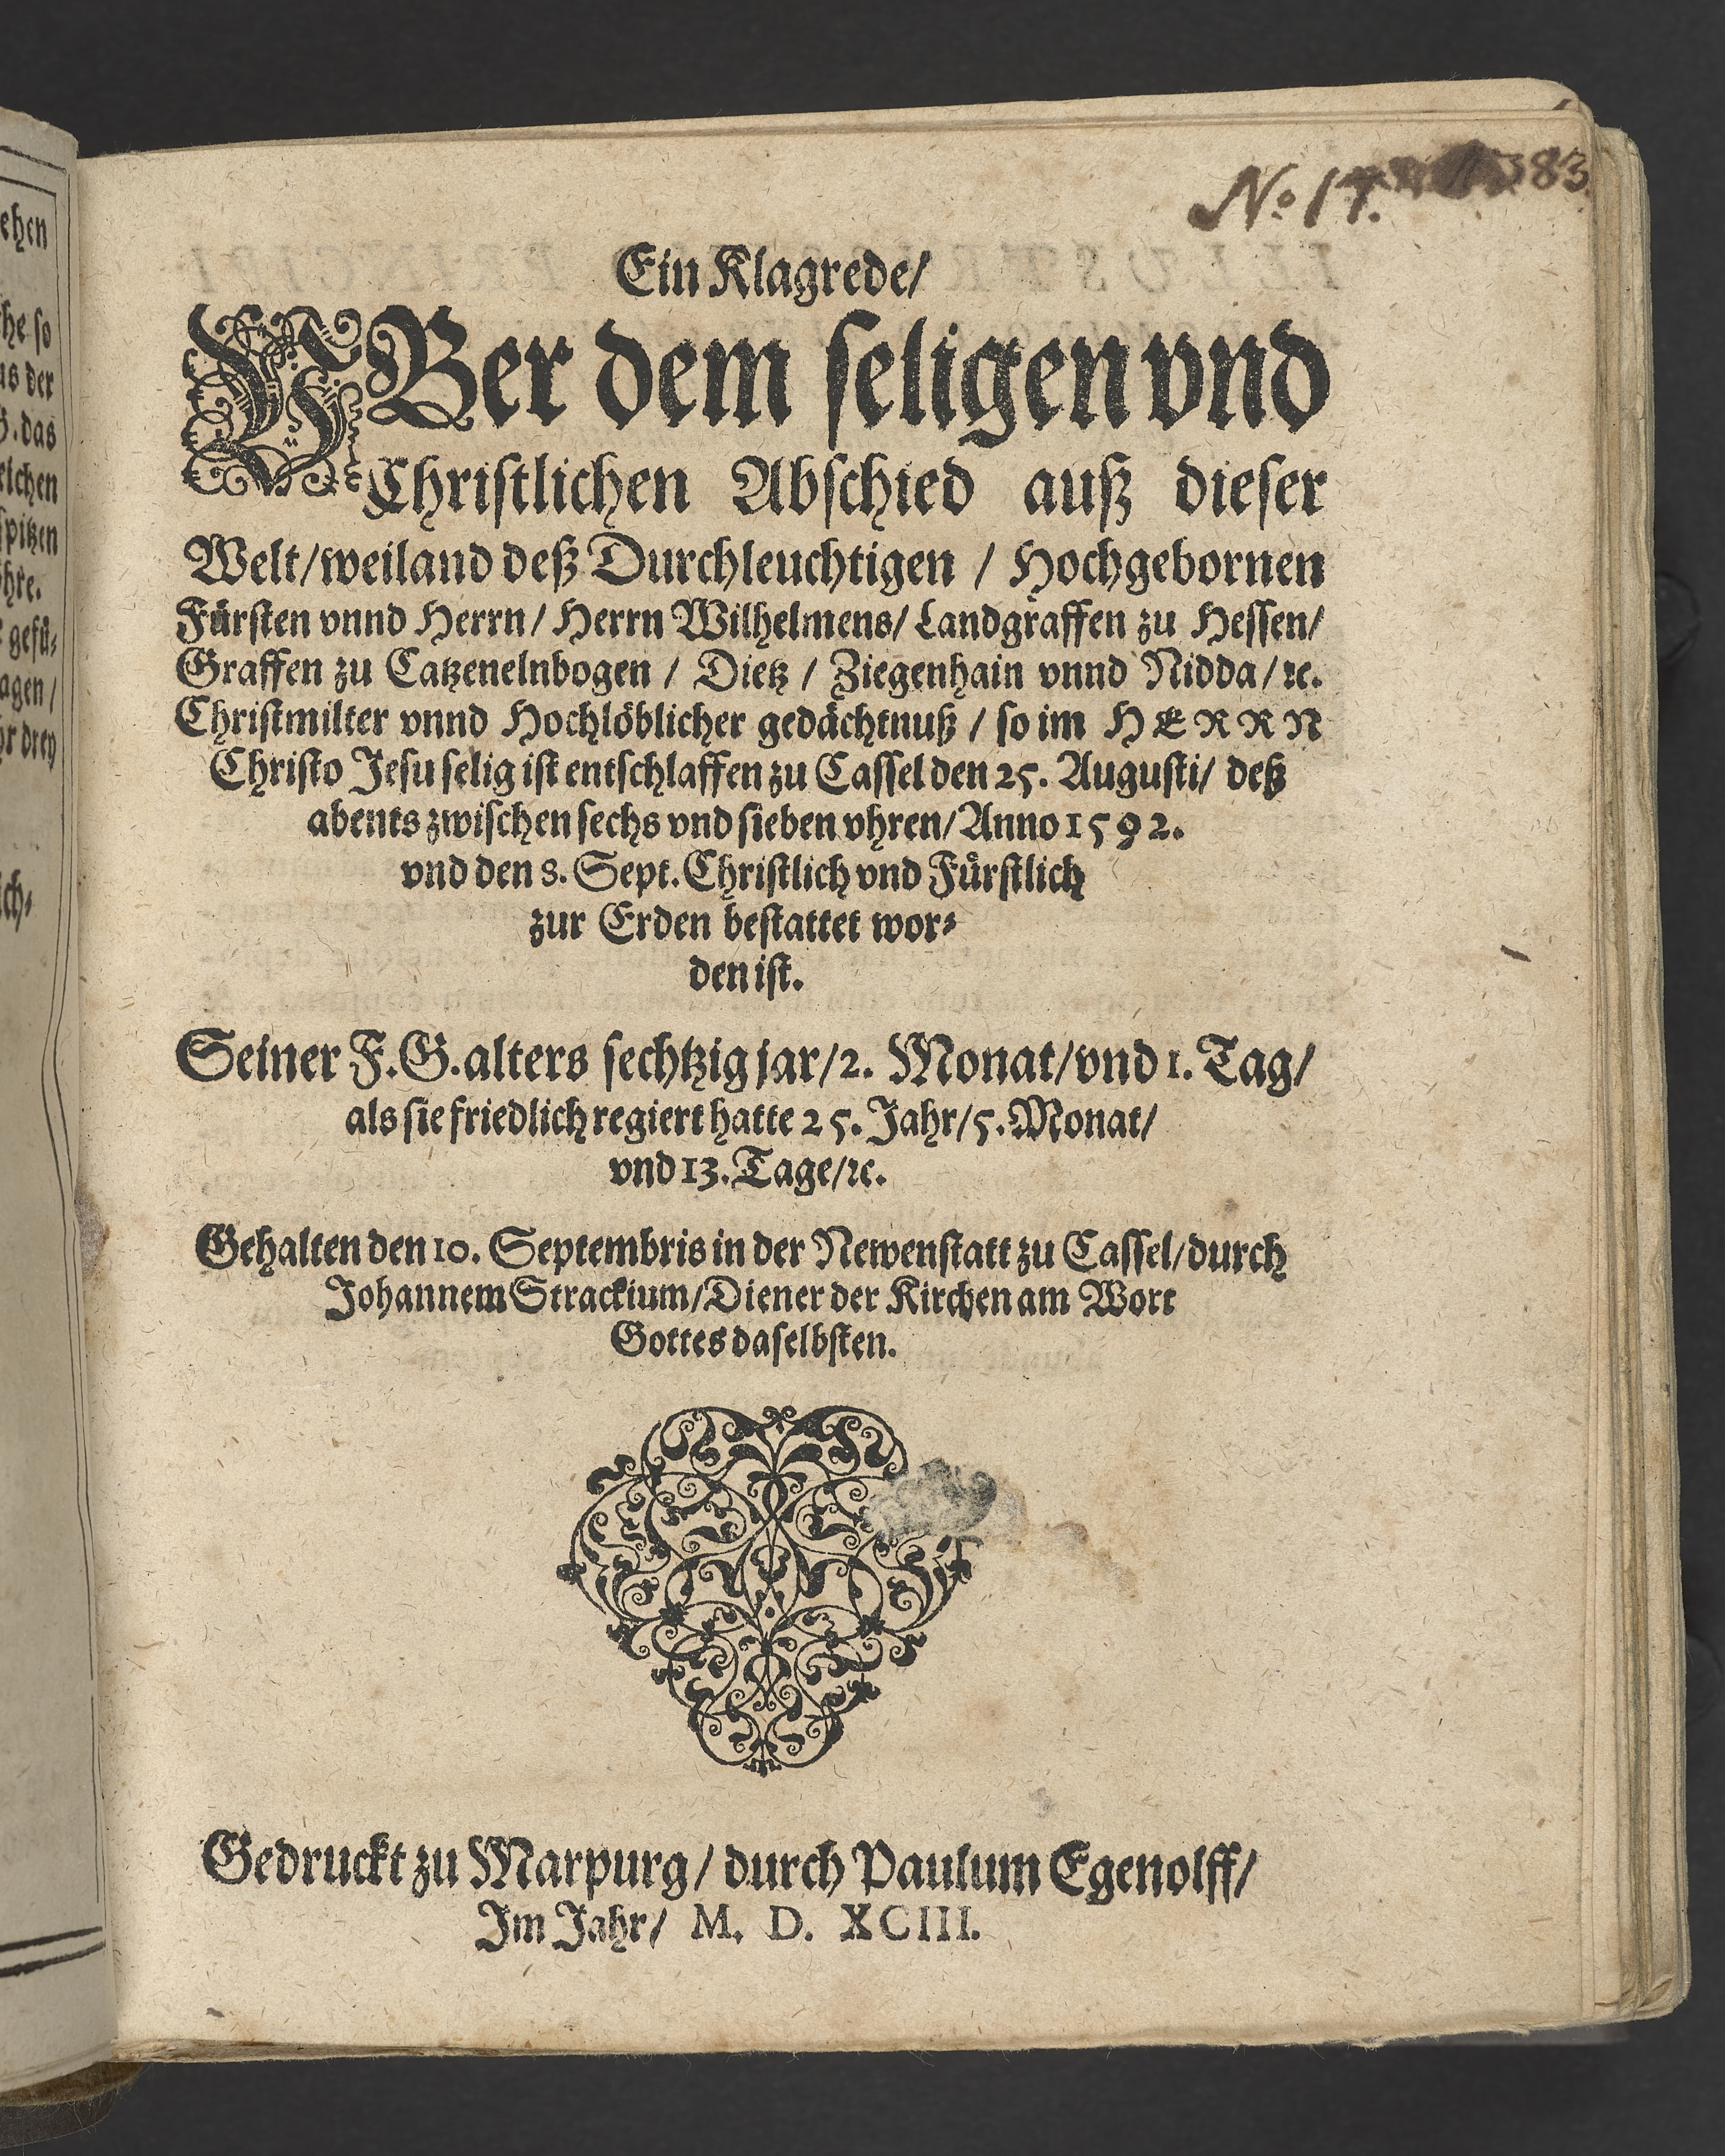 ehen
he so
us der
das
elchen
spitzen
hre.
gefü-
agen/
hr drey
ch-
No 17.
383
Ein Klagrede/
VBer dem seligen vnd
Christlichen Abschied auß dieser
Welt/weiland deß Durchleuchtigen / Hochgebornen
Fürsten vnnd Herrn/ Herrn Wilhelmens/ Landgraffen zu Hessen/
Graffen zu Catzenelnbogen / Dietz / Ziegenhain vnnd Nidda/ ꝛc.
Christmilter vnnd Hochlöblicher gedächtnuß / so im HERRN
Christo Jesu selig ist entschlaffen zu Cassel den 25. Augusti/ deß
abents zwischen sechs vnd sieben vhren/ Anno 1592.
vnd den 8. Sept. Christlich vnd Fürstlich
zur Erden bestattet wor-
den ist.
Seiner F.G. alters sechtzig jar/2. Monat/vnd 1. Tag/
als sie friedlich regiert hatte 25. Jahr/5. Monat/
vnd 13. Tage/ꝛc.
Gehalten den 10. Septembris in der Newenstatt zu Cassel/durch
Johannem Strackium/Diener der Kirchen am Wort
Gottes daselbsten.
Gedruckt zu Marpurg/ durch Paulum Egenolff/
Im Jahr/ M. D. XCIII.